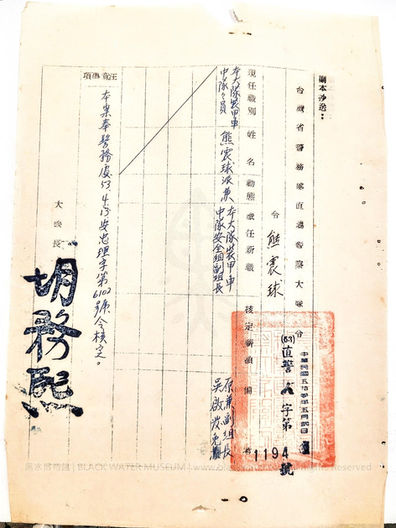 副本抄送：
台灣省警務處直屬警察大隊令
令 熊震球
中華民國五拾參年五月貳日
(53)直警人字第
1194號
現任職別 姓名 動態 調任新職 核定薪俸 備考
本大隊裝甲車中隊隊員 熊震球 派兼 本大隊裝甲車中隊安全組副組長
原兼副組長吳啟發免兼
注意事項
本案奉警務處53.4.13安忠理字第6102號令核定。
大隊長
胡務熙
黑水博物館 | BLACK WATER MUSEUM |